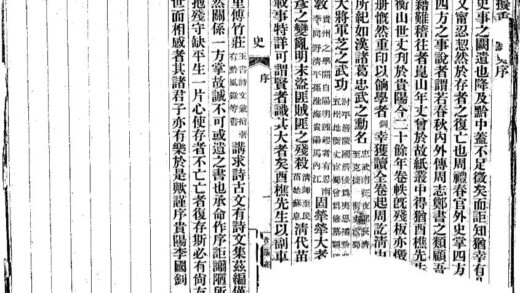 史事之闕遺也降及黔中蓋不足徵矣而詎知猶幸有
又甯忍忽然於存者之復亡也周禮春官外史掌四方
四方之事說者謂若春秋內外傳周志鄭書之類顧吾
籍難稽往者崑山年丈曾於故紙叢中得猶酉樵先生
衡山世丈刋於貴陽今二十餘年卷帙旣殘板亦燬
册慨然重印以餉學者釗幸獲讀全卷起周訖清
所紀如漢諸葛忠武之勳名
大將軍芝之武功
敎 固犖犖大者
彥之變亂明末盜匪賊匪之殘殺 清代苗
載事特詳可謂賢者識其大者矣酉樵先生以副車
史
序
一
里傅竹莊 講求詩古文有詩文集茲編僅
然關係一方掌故誠不可或遺之書也承命作序詎謂陋所
抱殘守缺平生一片心使存者不亡亡者復存斯必有尙友
世而相感者其諸君子亦有樂於是歟謹序貴陽李國釗